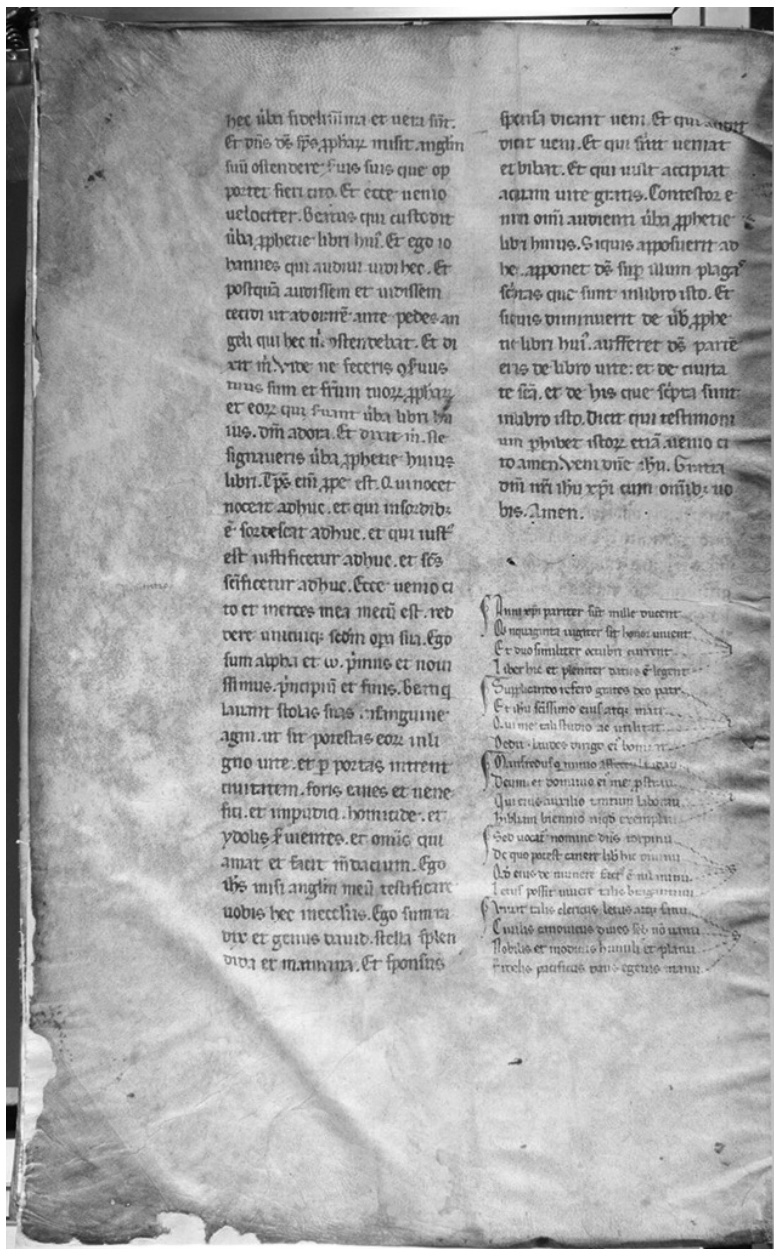 hec ũba fidelissima et uera sũt.
Et dñs ds̃ sp̃s ꝓphaꝝ misit anglm̃
suũ ostendere seruis suis que op
portet fieri cito. Et ecce uenio
uelociter. Beatus qui custodit
ũba ꝓphetie libri huiꝰ. Et ego io
hannes qui audiui uidi hec. Et
postquã audissem et uidissem
cecidi ut adorarẽ ante pedes an
geli qui hec m̃ ostendebat. Et di
xit m̃. Vide ne feceris
tuus sum et frũm tuoꝝ ꝓphaꝝ
et eoꝝ qui seruant ũba libri hu
ius. dm̃ adora. Et dixit m̃. Ne
signaueris ũba ꝓphetie huius
libri. Tp̃s em̃ ꝓpe est. Qui nocet
noceat adhuc. et qui insordibꝫ
ẽ sordescat adhuc. et qui iustꝰ
est iustificetur adhuc. et sc̃s
sc̃ificetur adhuc. Ecce uenio ci
to et merces mea mecũ est. red
dere unicuiqꝫ scdm̃ oꝑa sua. Ego
sum alpha et ω. pimus et noui
ssimus. pincipiũ et finis. Beati q
lauant stolas suas in sanguine
agni. ut sit potestas eoꝝ in li
gno uite. et ꝑ portas intrent
ciuitatem. foris canes et uene
fici. et impudici. homicide. et
ydolis seruientes. et omĩs qui
amat et facit m̃dacium. Ego
ihs̃ misi anglm̃ meũ testificare
uobis hec in ecclĩis. Ego sum ra
dix et genus dauid. stella splen
dida et matutina. Et sponsus
sponsa dicunt ueni. Et qui audit
dicit ueni. Et qui sitit ueniat
et bibat. Et qui uult accipiat
aquam uite gratis. Contestor e
nim om̃i audienti ũba ꝓphetie
libri huius. Siquis apposuerit ad
hec. apponet ds̃ suꝑ illum plagas
sc̃ptas que sunt in libro isto. Et
siquis diminuerit de ũb. ꝓphe
tie libri huiꝰ. aufferet ds̃ partẽ
eius de libro uite. et de ciuita
te sc̃a. et de his que sc̃pta sunt
in libro isto. Dicit qui testimoni
um phibet istoꝝ etiã. uenio ci
to amen. Veni dñe ihũ. Gratia
dñi nr̃i ihũ xp̃i cum om̃ibꝫ uo
bis. Amen.
Anni xp̃i pariter sũt mille ducent
Quinquaginta iugiter sit honor uiuent
Et duo similiter occubũ current
Liber hic et pleniter datus ẽ legent
Supplicanto refero grates deo patri
Et ihũ sc̃issimo eius atqꝫ matri
Qui me tali studio ac utilitat
Dedit laudes
Manfredus
Deum et dominus
Qui eius auxilio tantum laboraui
Bibliam biennio
Sed uocatꝰ nomine dñs
De quo potest canere lib̃ hic
Qd̃ eius de munere factꝰ ẽ
Letus possit uiuere talis
Viuat talis clericus letus atqꝫ sanus
Ciuilis canonicus diues sed nõ uanus
Nobilis et modicus humilis et planus
Fidelis pacificus dans egenis manus